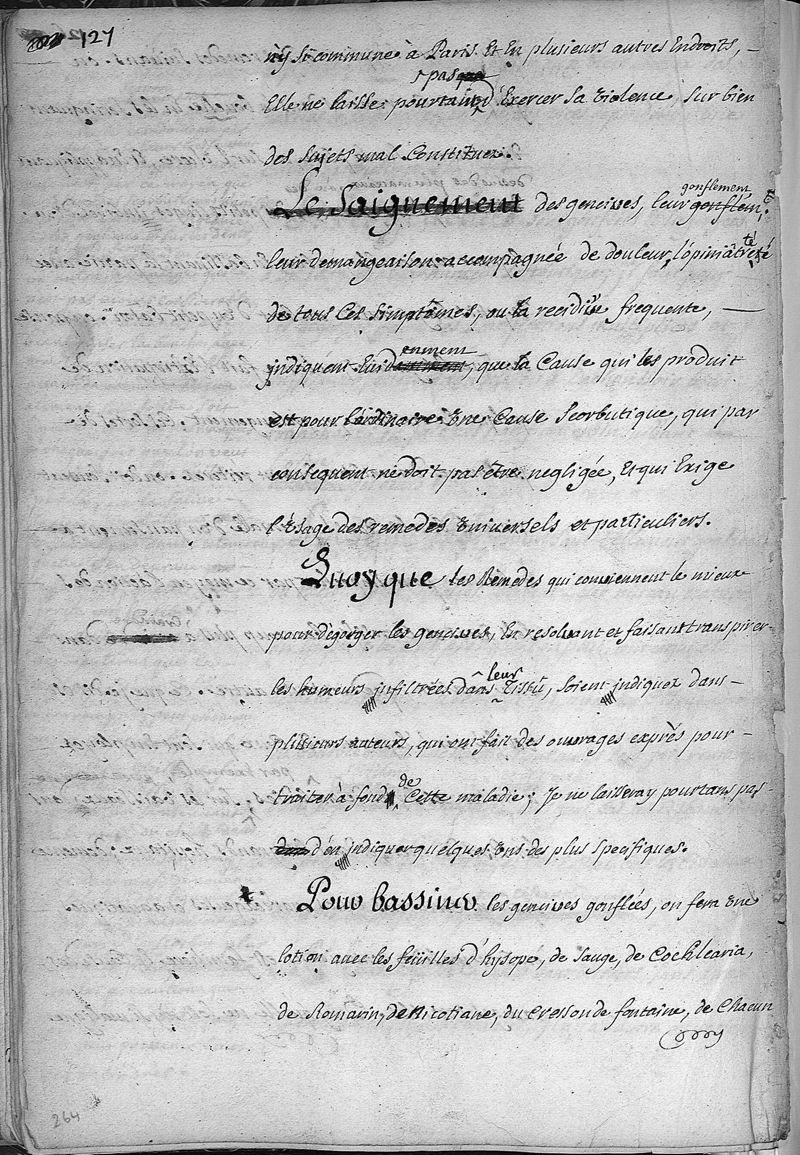 127
n'y si commune à Paris Et En plusieurs autres Endroits, —
pas
Elle ne laisse pourtant d'Exercer sa violence sur bien
des sujets mal Constituez.
gonflement
Le Saignement des gencives, leur gonflem.t
leur demangeaison accompagnée de douleur, l'opiniâtreté
de tous Ces simptômes, ou la recidive frequente, —
emment
indiquent Evidamment, que la Cause qui les produit
est pour l'ordinaire une Cause scorbutique, qui par
consequent ne doit pas être negligée, Et qui Exige
l'usage des remedes universels et particuliers.
Quoyque les Remedes qui conviennent le mieux
pour dégorger les gencives, En resolvant et faisant transpirer
leur
les humeurs infiltrées dans tissu, soient indiquez dans
plusieurs auteurs, qui ont fait des ouvrages exprès pour —
de
traiter à fond Cette maladie; Je ne laisseray pourtant pas
d'en indiquer quelques uns des plus specifiques.
Pour bassiner les gencives gonflées, on fera une
lotion avec les feüilles d'hysope, de sauge, de Cochlearia,
de Romarin, de Nicotiane, du Cresson de fontaine, de Chacun
264